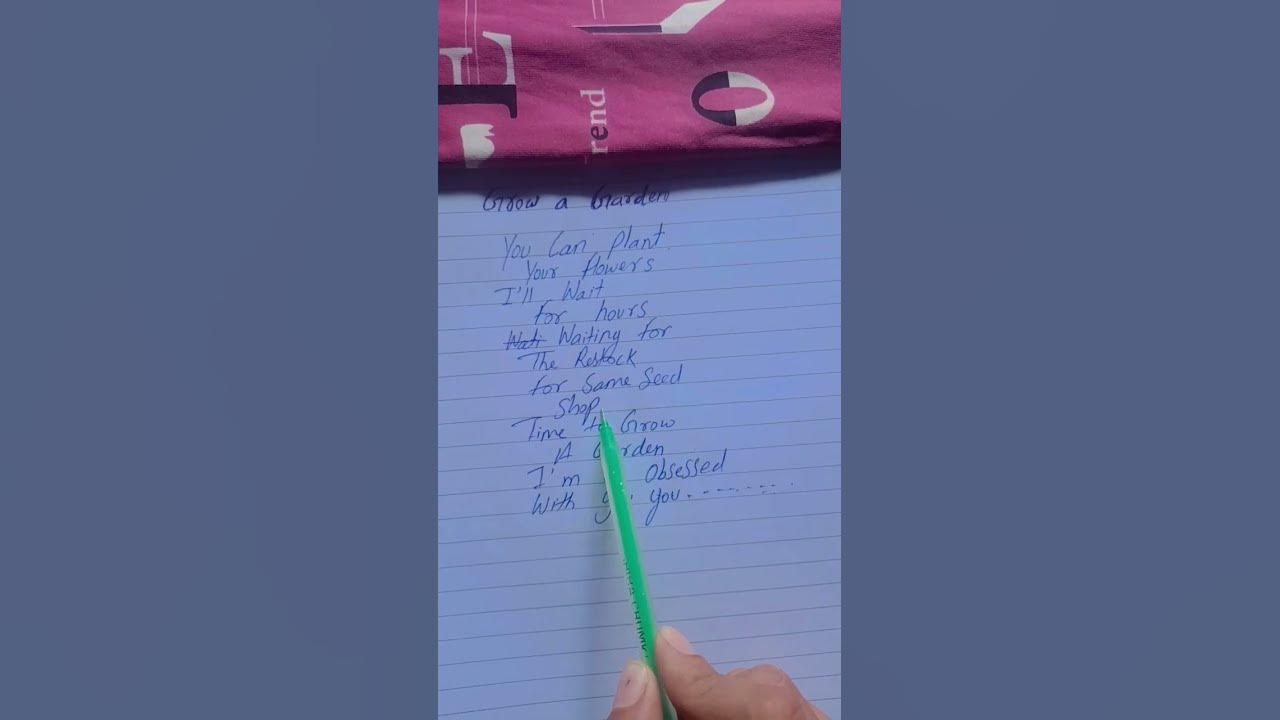 L
rend
O
Grow a Garden
You Can Plant
Your flowers
I'll Wait
for hours
Wati Waiting for
The Restock
for Same Seed
Shop
Time to Grow
A Garden
I'm Obsessed
With you--------